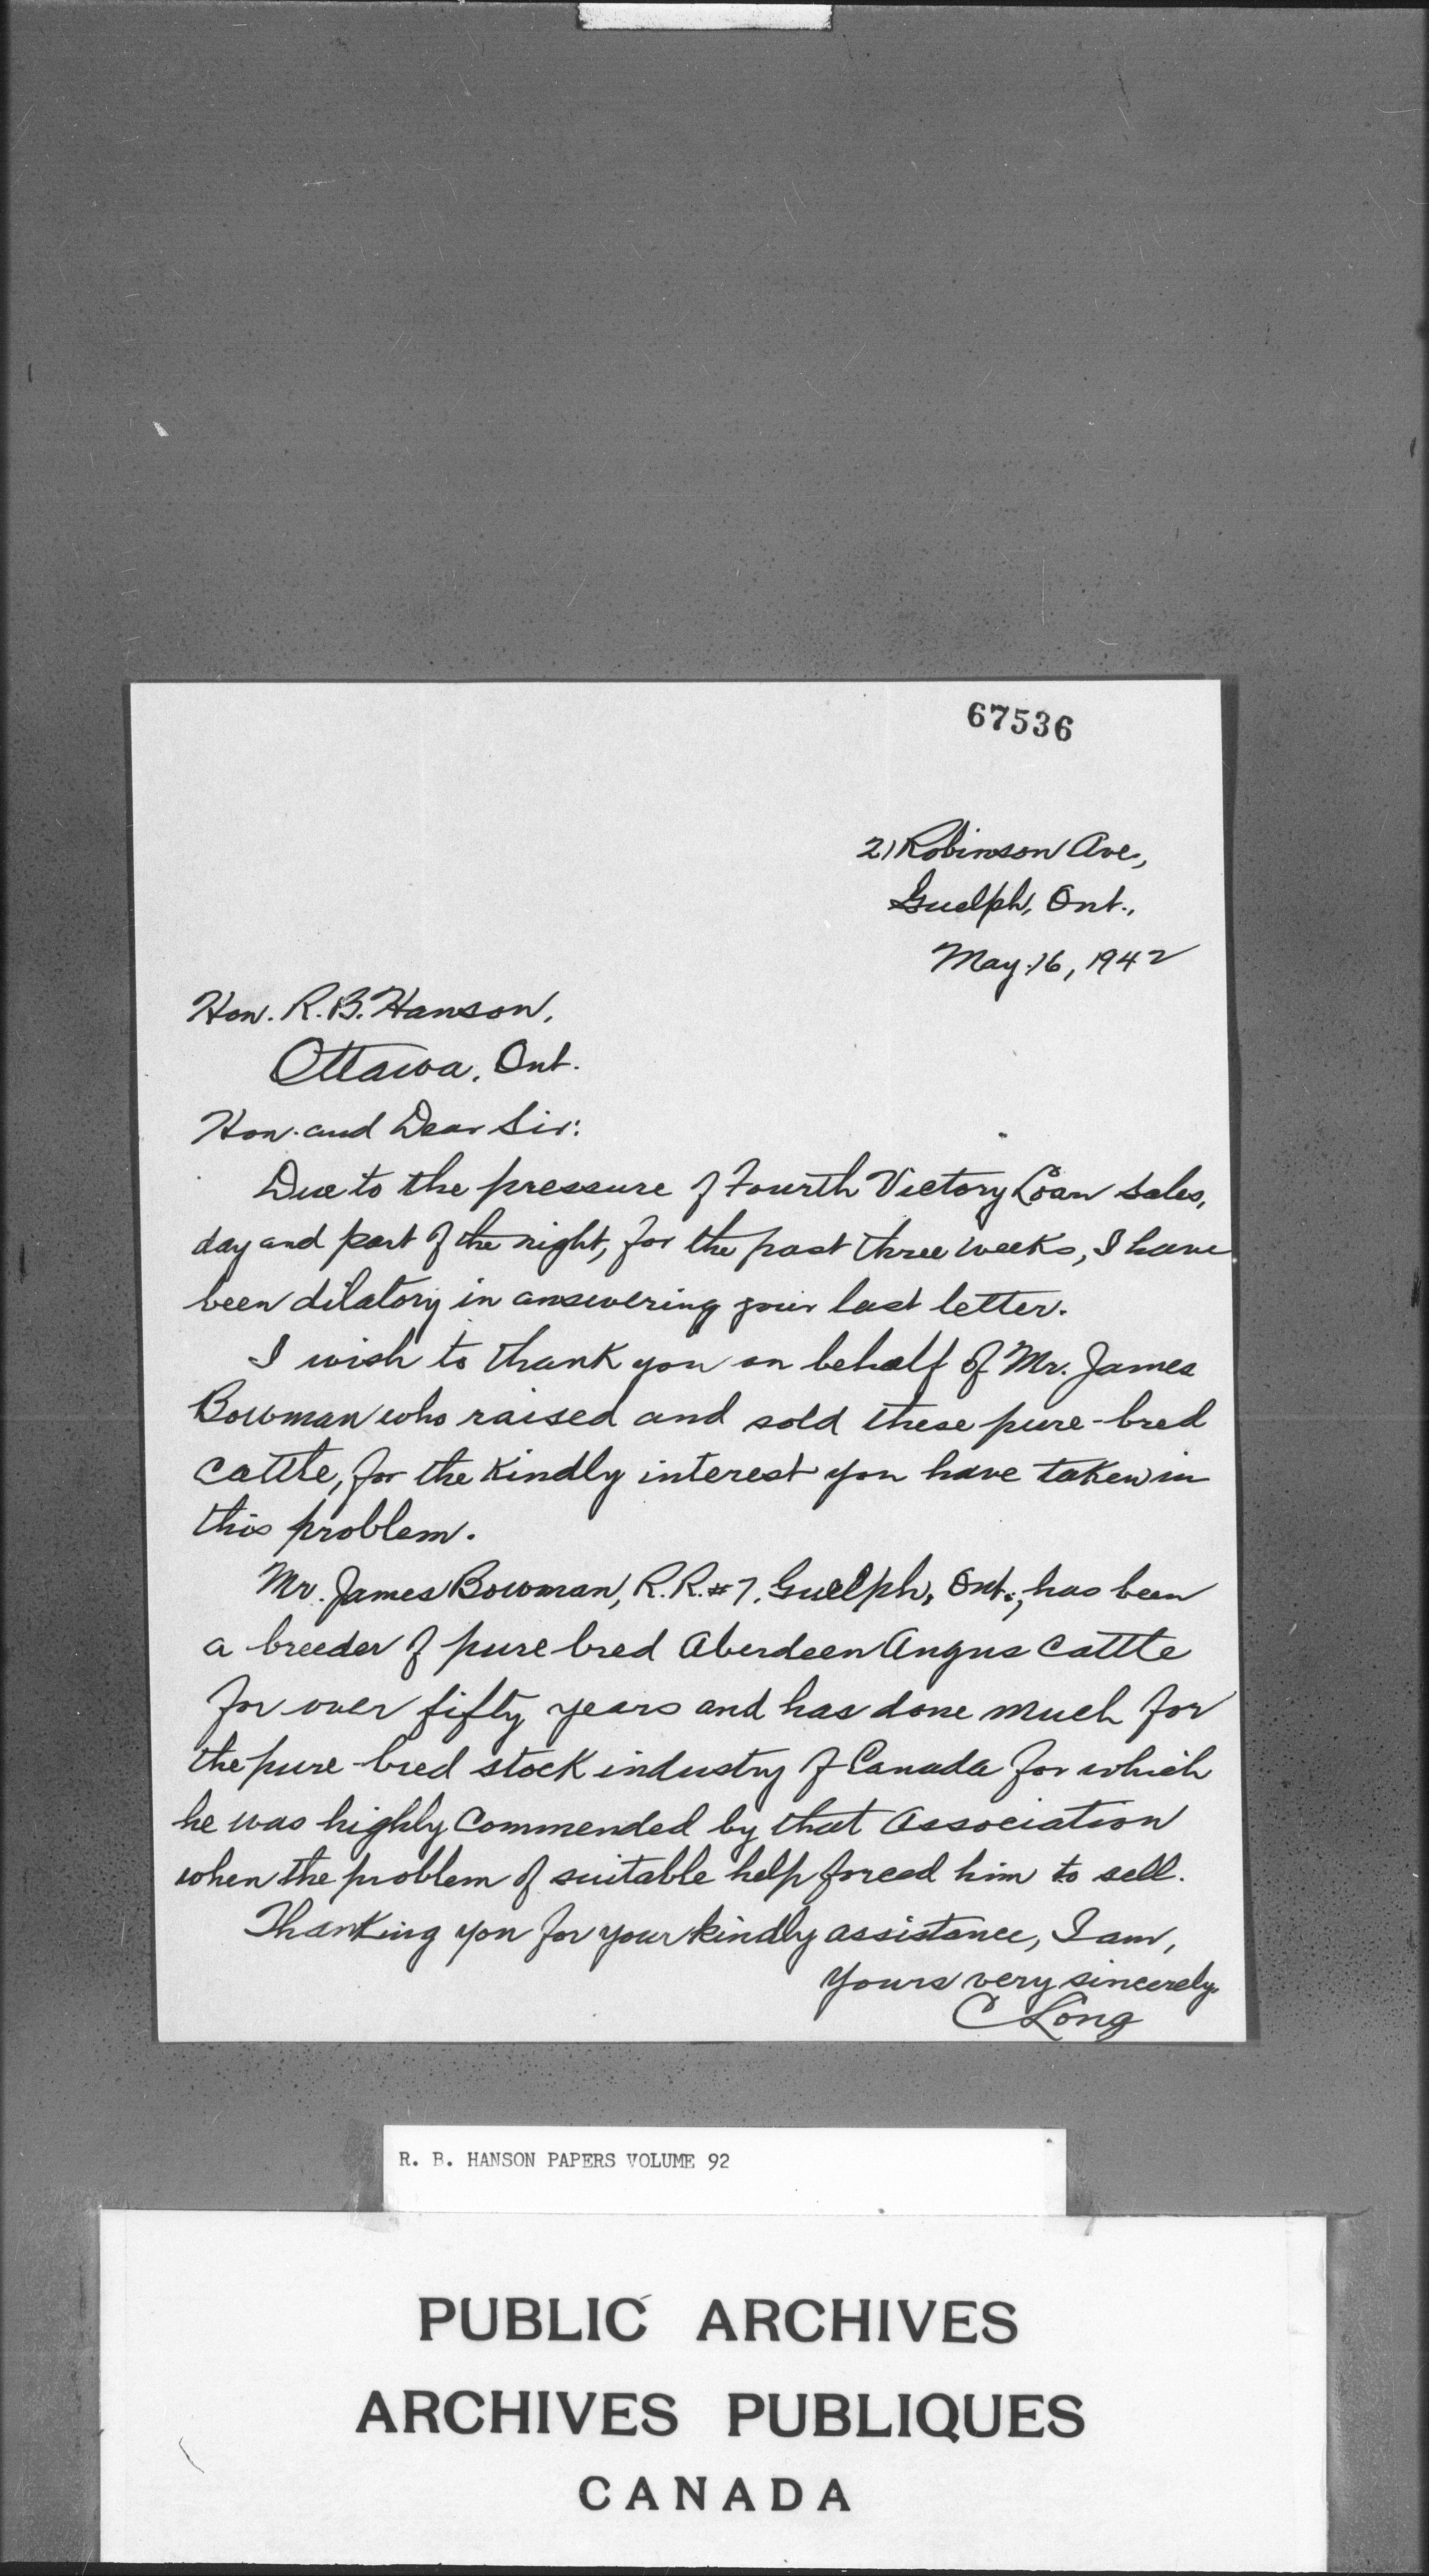 67536
21 Robinson Ave.,
Guelph, Ont.,
May 16, 1942
Hon. R. B. Hanson,
Ottawa, Ont.
Hon. and Dear Sir:
Due to the pressure of Fourth Victory Loan sales,
day and part of the night, for the past three weeks, I have
been dilatory in answering your last letter.
I wish to thank you on behalf of Mr. James
Bowman who raised and sold these pure-bred
cattle, for the kindly interest you have taken in
this problem.
Mr. James Bowman, R.R. #7, Guelph, Ont., has been
a breeder of pure bred Aberdeen Angus cattle
for over fifty years and has done much for
the pure-bred stock industry of Canada for which
he was highly commended by that association
when the problem of suitable help forced him to sell.
Thanking you for your kindly assistance, I am,
Yours very sincerely,
C Long
R. B. HANSON PAPERS VOLUME 92
PUBLIC ARCHIVES
ARCHIVES PUBLIQUES
CANADA